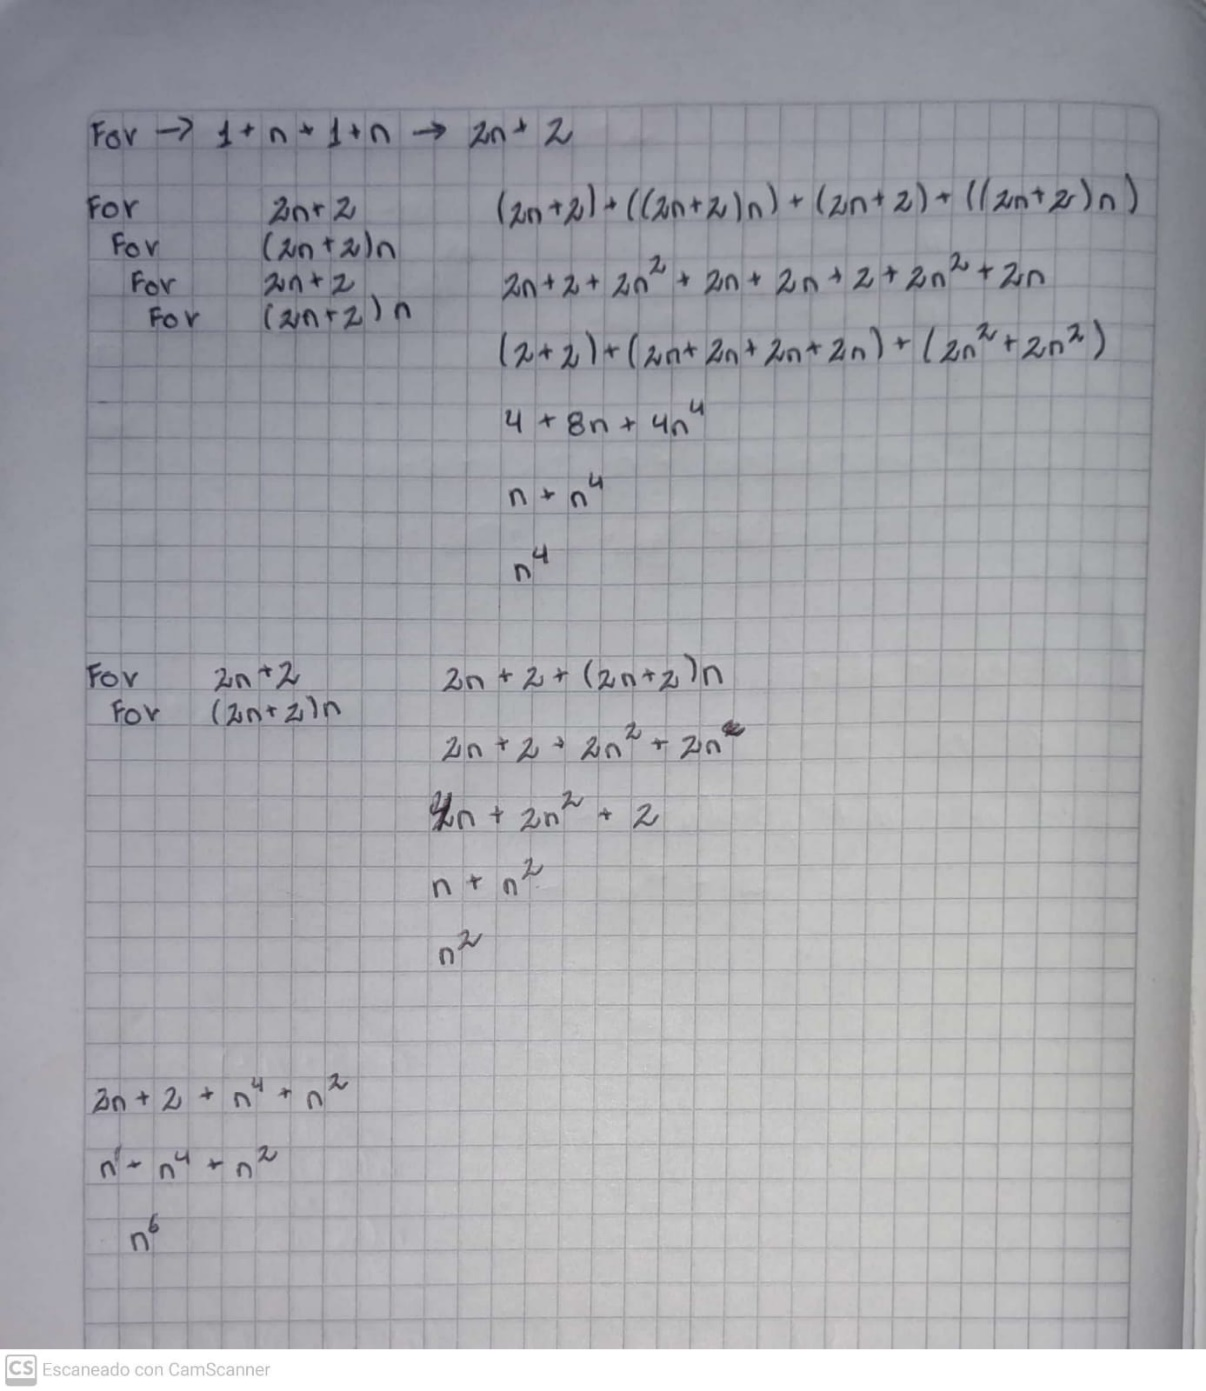 For → 1 + n + 1 + n → 2n + 2
For 2n + 2 (2n+2) + ((2n+2)n) + (2n+2) + ((2n+2)n)
For (2n+2)n
For 2n+2 2n+2 + 2n² + 2n + 2n + 2 + 2n² + 2n
For (2n+2)n
(2+2) + (2n+2n+2n+2n) + (2n²+2n²)
4 + 8n + 4n⁴
n + n⁴
n⁴
For 2n+2 2n + 2 + (2n+2)n
For (2n+2)n
2n + 2 + 2n² + 2n
4n + 2n² + 2
n + n²
n²
2n + 2 + n⁴ + n²
n¹ + n⁴ + n²
n⁶
CS Escaneado con CamScanner